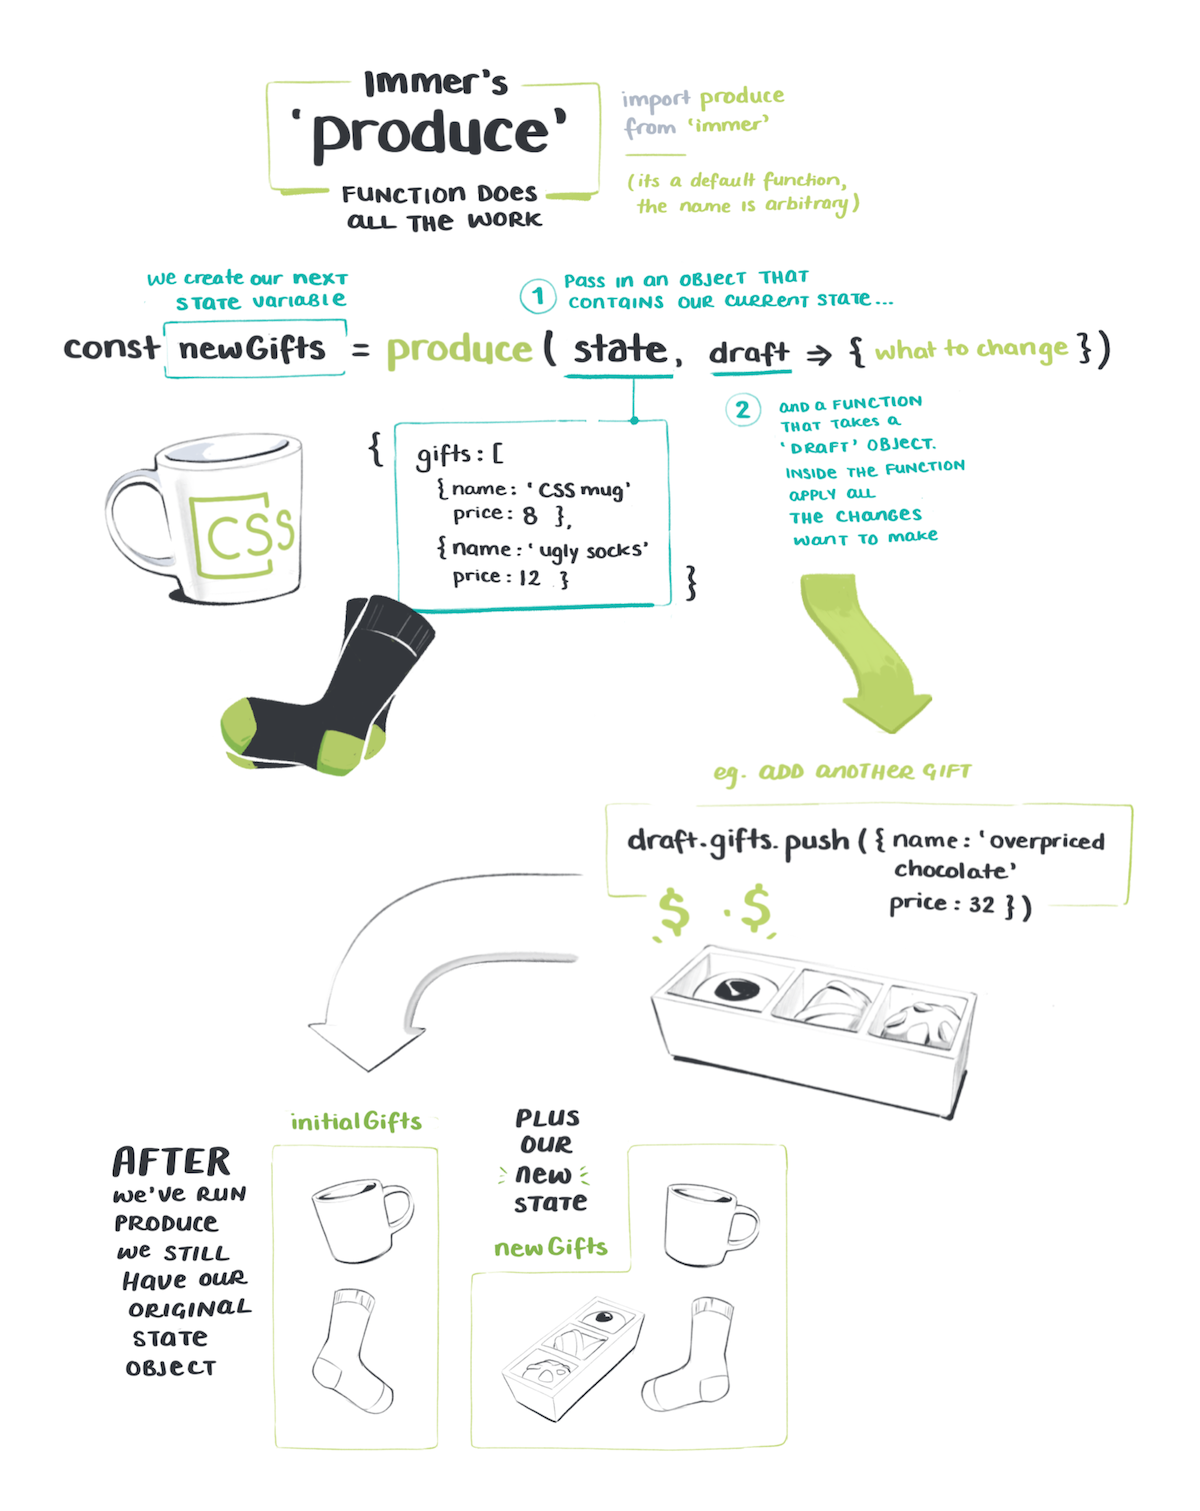 Immer's
'produce'
FUNCTION DOES
ALL THE WORK
import produce
from 'immer'
(its a default function,
the name is arbitrary)
we create our next
state variable
1
Pass in an object that
contains our current state...
const newGifts = produce ( state, draft => { what to change } )
2
and a function
that takes a
'draft' object.
inside the function
apply all
the changes
want to make
{
gifts: [
{ name: 'CSS mug'
price: 8 },
{ name: 'ugly socks'
price: 12 }
}
CSS
eg. add another gift
draft.gifts.push ( { name: 'overpriced
chocolate'
price: 32 } )
$ $
initialGifts
AFTER
we've run
produce
we still
have our
original
state
object
PLUS
OUR
new
state
newGifts